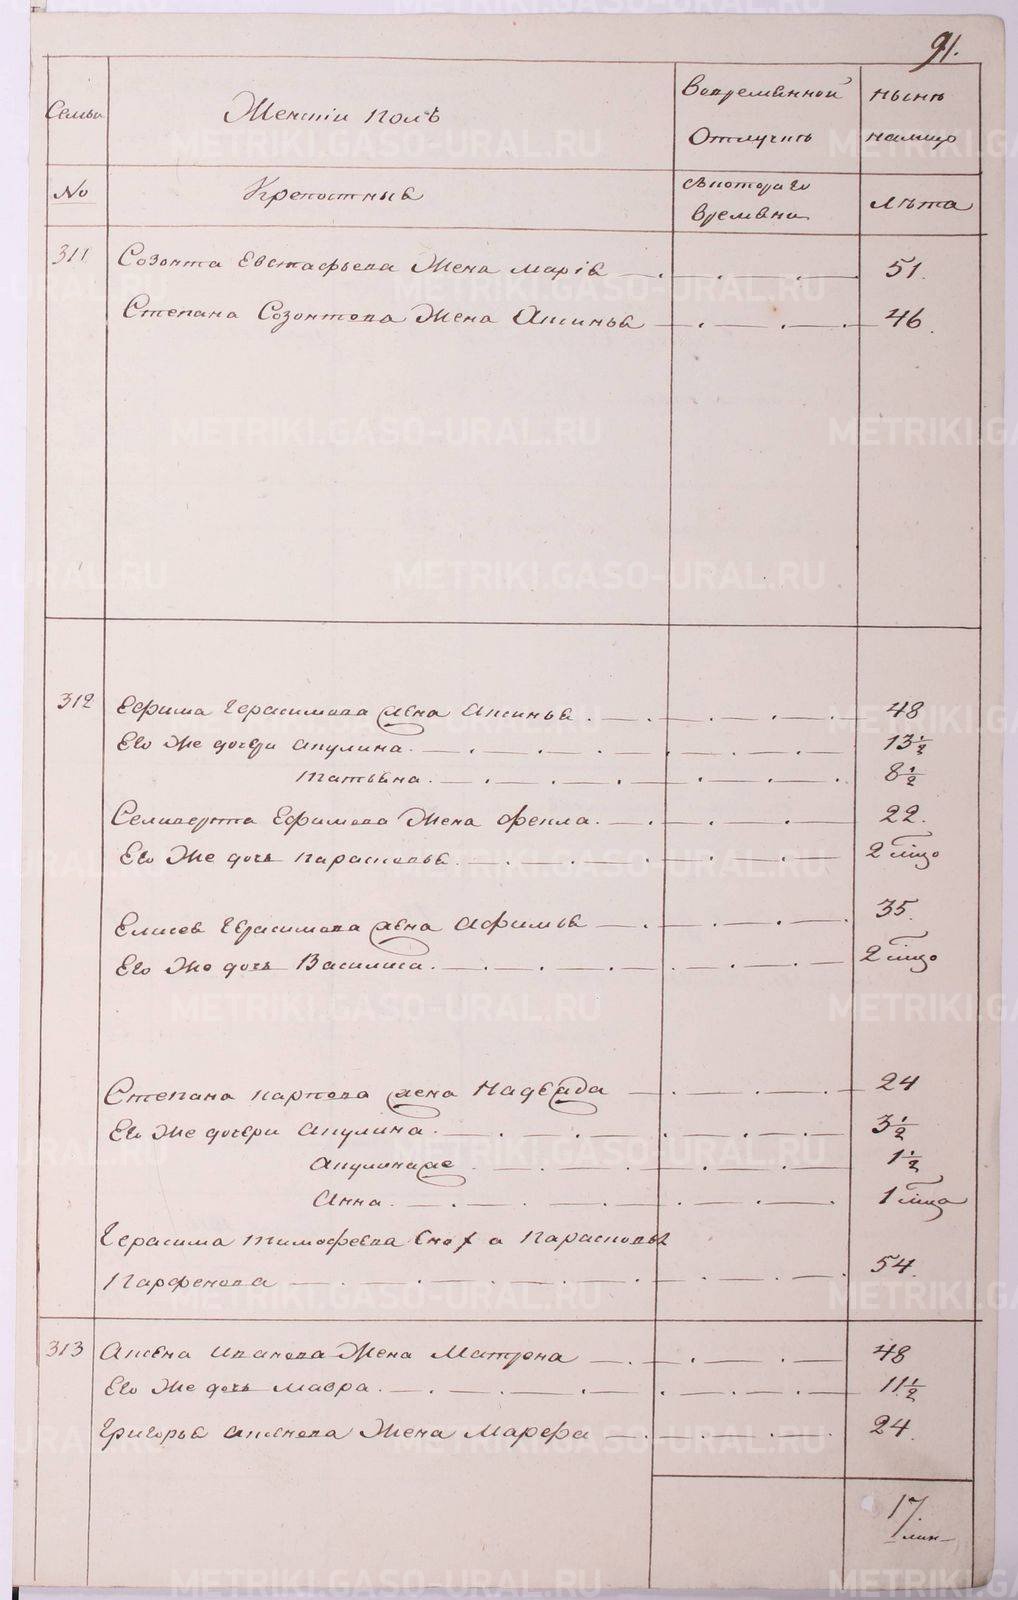 91.
Семьи
Женскiй полъ
Вовременной
Отлучкѣ
нынѣ
налицо
No
Крепостныя
съкотораго
Времени
Лѣта
311 Созонта Евстафьева Жена Марiя 51.
Степана Созонтова Жена Аксинья 46.
312 Ефима Герасимова жена Аксинья 48
Его Же дочери Акулина 13½
Татьяна 8½
Селиверста Ефимова Жена Фекла 22.
Его Же дочь Парасковья 2
Елисея Герасимова жена Афимья 35.
Его Же дочь Василиса 2
Степана Карпова жена Надежда 24
Его Же дочери Акулина 3½
Акулина же 1½
Анна 1
Герасима Тимофеева Сноха Парасковья
Парфенова 54.
313 Иванова Жена Матрона 48
Его Же дочь Мавра 11½
Григорья Жена Марфа 24.
17.
METRIKI.GASO-URAL.RU